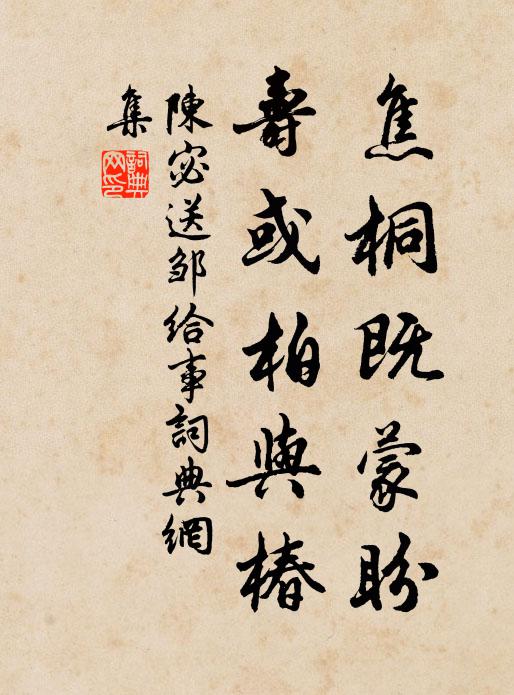 焦桐既蒙盼
壽或柏與椿
陳宓送邹给事詞典網
集
詞典
网印